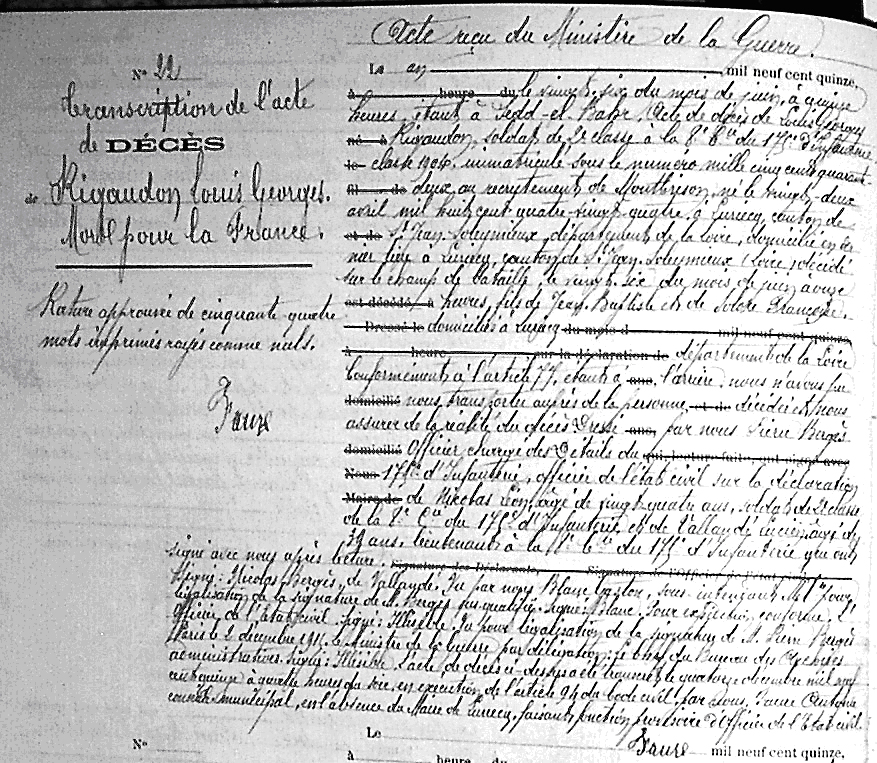 Acte reçu du Ministère de la Guerre.
N° 22
Transcription de l'acte
de DÉCÈS
de Rigaudon Louis Georges.
Mort pour la France.
Rature approuvée de cinquante quatre
mots imprimés rayés comme nuls.
Faure
Le an mil neuf cent quinze,
à heure du le vingt six du mois de juin, à quinze
heures, étant à Sedd-el-Bahr. Acte de décès de Louis Georges
né à Rigaudon, soldat de 2e classe à la 8e Cie du 175e d'Infanterie
le classe 1904, immatriculé sous le numéro mille cinq cent quarant-
fil de deux, au recrutement de Montbrison, né le vingt-deux
avril mil huit cent quatre-vingt quatre, à Lurecq, canton de
et de St Jean Soleymieux, département de la Loire, domicilié en der
nier lieu à Lurecq, canton de St Jean Soleymieux (Loire) décédé
sur le champ de bataille, le vingt six du mois de juin à onze
est décédé, à heures, fils de Jean Baptiste et de Françoise.
Dressé le domiciliés à Lurecq du mois d mil neuf cent quinze
à heure sur la déclaration de département de la Loire
Conformément à l'article 77, étant à ans, l'arrière, nous n'avons pu
domicilié nous transporter auprès de la personne et de décédée et nous
assurer de la réalité du décès Dressé ans, par nous Pierre Bergès
domicilié Officier chargé des Détails du qui, lecture faite, ont signé avec
Nous 175e d'Infanterie, officier de l'état civil sur la déclaration
Maire de de Nicolas Léon, âgé de vingt quatre ans, soldat de 2e classe
de la 8e Cie du 175e d'Infanterie, et de Vallandé Lucien, âgé de
ans, lieutenant à la Cie du 175e d'Infanterie qui ont
signé avec nous après lecture. Signature des Déclarants, Signature de l'Officier de l'état civil
Signé: Nicolas, Bergès, de Vallandé. Vu par nous Blanc Gaston, sous-intendant Mre pour
légalisation de la signature de M. Bergès sus qualifié. Signé: Blanc. Pour expédition conforme, L'
Officier de l'état civil. Signé: Illisible. Vu pour légalisation de la signature de M. Pierre Bergès
Paris le 2 décembre 1915. le Ministre de la Guerre par délégation: le chef du Bureau des Archives
administratives. Signé: Illisible. L'acte de décès ci-dessus a été transcrit le quatorze décembre mil neuf
cent quinze à quatre heures du soir, en exécution de l'article 94 du Code civil, par nous, Faure Antoine
conseiller municipal, en l'absence du Maire de Lurecq, faisant fonction provisoire d'Officier de l'Etat civil
Faure
N° Le mil neuf cent quinze,
à heure du